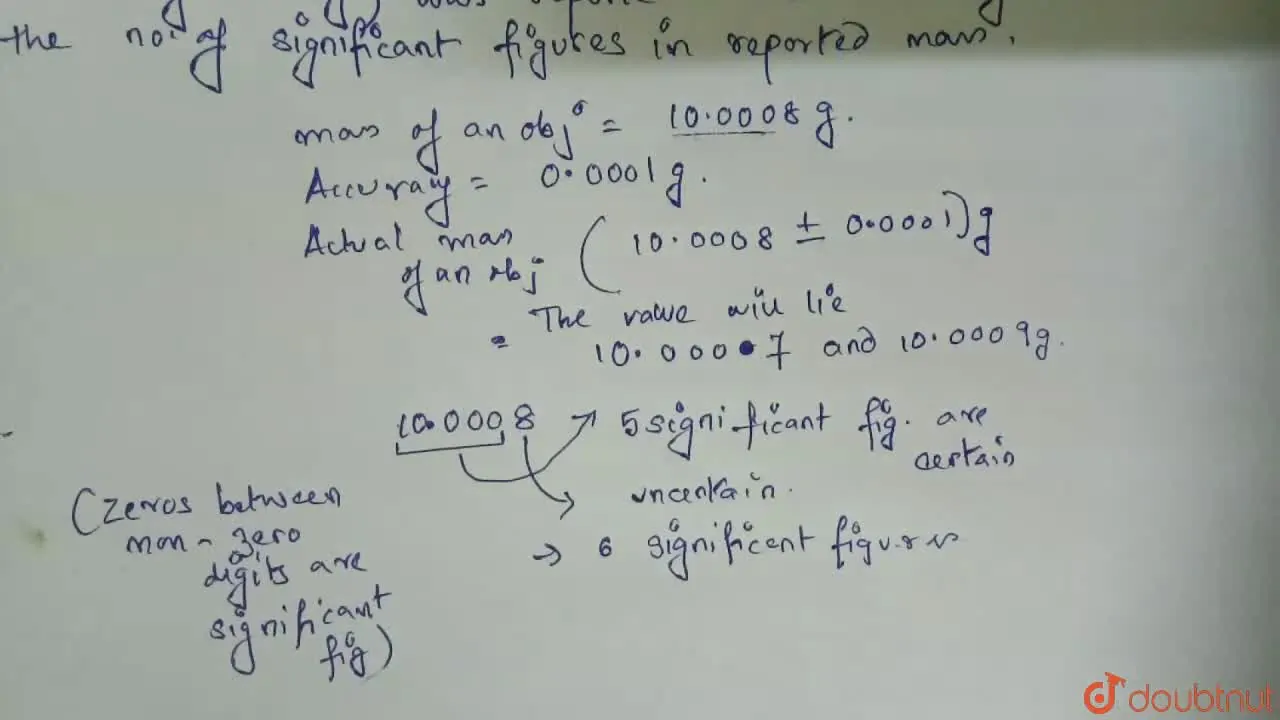 was
the no. of significant figures in reported mass.
mass of an obj = 10.0008 g.
Accuracy = 0.0001 g.
Actual mass of an obj (10.0008 ± 0.0001) g
= The value will lie
10.0007 and 10.0009 g.
10.0008 → 5 significant fig. are
certain
(zeros between → uncertain.
non-zero → 6 significant figures
digits are
significant
fig)
doubtnut